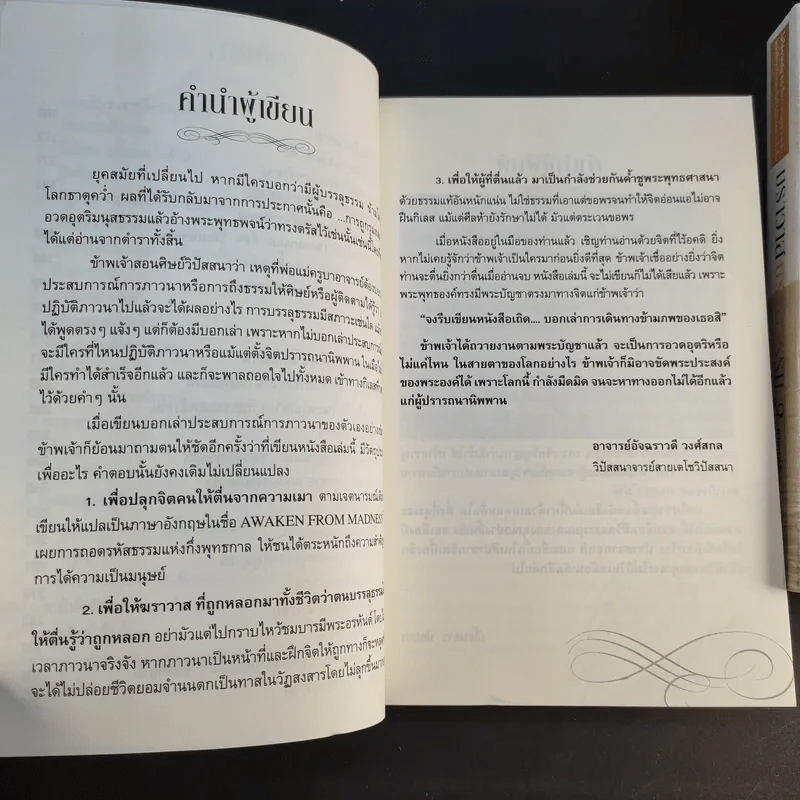 คำนำผู้เขียน
ยุคสมัยที่เปลี่ยนไป หากมีใครบอกว่ามีผู้บรรลุธรรม
โลกธาตุคว่ำ ผลที่ได้รับกลับมาจากการประกาศนั้นคือ ...การถูก
อวดอุตริมนุสธรรมแล้วอ้างพระพุทธพจน์ว่าทรงตรัสไว้เช่นนั้นเช่นนี้
ได้แต่อ่านจากตำราทั้งสิ้น
ข้าพเจ้าสอนศิษย์วิปัสสนาว่า เหตุที่พ่อแม่ครูบาอาจารย์ต้อง
ประสบการณ์การภาวนาหรือการถึงธรรมให้ศิษย์หรือผู้ติดตามได้รู้
ปฏิบัติภาวนาไปแล้วจะได้ผลอย่างไร การบรรลุธรรมมีสภาวะเช่นใด
ได้พูดตรงๆ แจ้งๆ แต่ก็ต้องมีบอกเล่า เพราะหากไม่บอกเล่าประสบการณ์
จะมีใครที่ไหนปฏิบัติภาวนาหรือแม้แต่ตั้งจิตปรารถนานิพพาน ในเมื่อ
มีใครทำได้สำเร็จอีกแล้ว และก็จะพาลถอดใจไปทั้งหมด เข้าทางกิเลส
ไว้ด้วยคำๆ นั้น
เมื่อเขียนบอกเล่าประสบการณ์การภาวนาของตัวเองอย่าง
ข้าพเจ้าก็ย้อนมาถามตนให้ชัดอีกครั้งว่าที่เขียนหนังสือเล่มนี้ มีวัตถุ
เพื่ออะไร คำตอบนั้นยังคงเดิมไม่เปลี่ยนแปลง
1. เพื่อปลุกจิตคนให้ตื่นจากความเมา ตามเจตนารมณ์
เขียนให้แปลเป็นภาษาอังกฤษในชื่อ AWAKEN FROM MADNESS
เผยการถอดรหัสธรรมแห่งกึ่งพุทธกาล ให้ชนได้ตระหนักถึงความสำคัญ
การได้ความเป็นมนุษย์
2. เพื่อให้ฆราวาส ที่ถูกหลอกมาทั้งชีวิตว่าตนบรรลุธรรม
ให้ตื่นรู้ว่าถูกหลอก อย่ามัวแต่ไปกราบไหว้ชมบารมีพระอรหันต์
เวลาภาวนาจริงจัง หากภาวนาเป็นหน้าที่และฝึกจิตให้ถูกทางก็จะ
จะได้ไม่ปล่อยชีวิตยอมจำนนตกเป็นทาสในวัฏสงสารโดยไม่ลุกขึ้น
3. เพื่อให้ผู้ที่ตื่นแล้ว มาเป็นกำลังช่วยกันค้ำชูพระพุทธศาสนา
ด้วยธรรมแท้อันหนักแน่น ไม่ใช่ธรรมที่เอาแต่ขอพรจนทำให้จิตอ่อนแอไม่อาจ
ฝืนกิเลส แม้แต่ศีลห้ายังรักษาไม่ได้ มัวแต่ตระเวนขอพร
เมื่อหนังสืออยู่ในมือของท่านแล้ว เชิญท่านอ่านด้วยจิตที่ไร้อคติ ยิ่ง
หากไม่เคยรู้จักว่าข้าพเจ้าเป็นใครมาก่อนยิ่งดีที่สุด ข้าพเจ้าเชื่ออย่างยิ่งว่าจิต
ท่านจะตื่นยิ่งกว่าตื่นเมื่ออ่านจบ หนังสือเล่มนี้ จะไม่เขียนก็ไม่ได้เสียแล้ว เพราะ
พระพุทธองค์ทรงมีพระบัญชาตรงมาทางจิตแก่ข้าพเจ้าว่า
“จงรีบเขียนหนังสือเถิด.... บอกเล่าการเดินทางข้ามภพของเธอสิ”
ข้าพเจ้าได้ถวายงานตามพระบัญชาแล้ว จะเป็นการอวดอุตริหรือ
ไม่แค่ไหน ในสายตาของโลกอย่างไร ข้าพเจ้าก็มิอาจขัดพระประสงค์
ของพระองค์ได้ เพราะโลกนี้ กำลังมืดมิด จนจะหาทางออกไม่ได้อีกแล้ว
แก่ผู้ปรารถนานิพพาน
อาจารย์อัจฉราวดี วงศ์สกล
วิปัสสนาจารย์สายเตโชวิปัสสนา